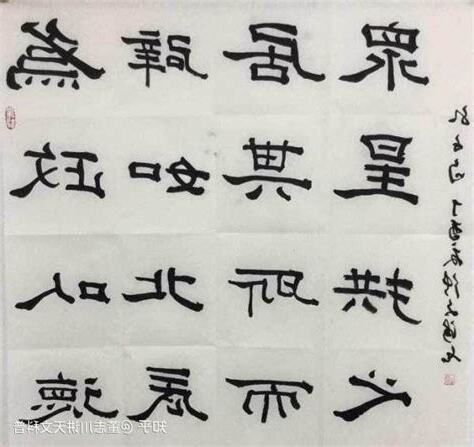 為政以德
辟如北辰
居其所而
眾星拱之
知乎 @董志川讲天文科普